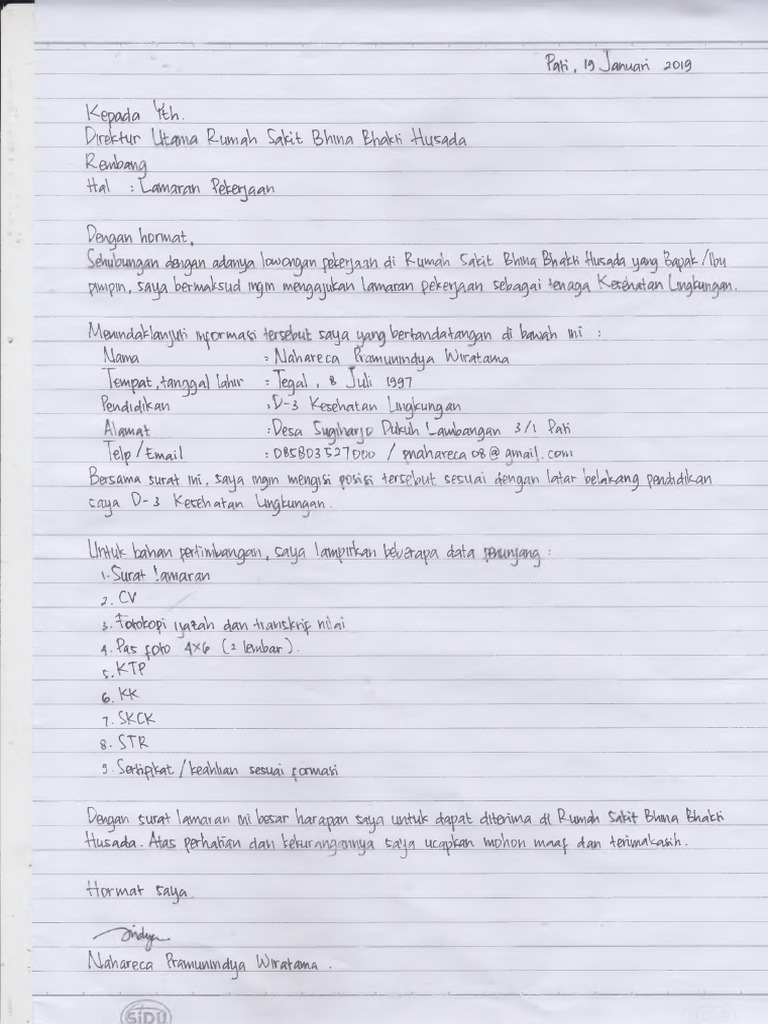 Pati, 19 Januari 2019
Kepada Yth.
Direktur Utama Rumah Sakit Bhina Bhakti Husada
Rembang
Hal : Lamaran Pekerjaan
Dengan hormat,
Sehubungan dengan adanya lowongan pekerjaan di Rumah Sakit Bhina Bhakti Husada yang Bapak/Ibu
pimpin, saya bermaksud ingin mengajukan lamaran pekerjaan sebagai tenaga Kesehatan Lingkungan.
Menindaklanjuti informasi tersebut saya yang bertandatangan di bawah ini :
Nama : Nahareca Pramunindya Wiratama
Tempat, tanggal lahir : Tegal, 8 Juli 1997
Pendidikan : D-3 Kesehatan Lingkungan
Alamat : Desa Sugiharjo Dukuh Lambangan 3/1 Pati
Telp/Email : 085803527000 / pnahareca08@gmail.com
Bersama surat ini, saya ingin mengisi posisi tersebut sesuai dengan latar belakang pendidikan
saya D-3 Kesehatan Lingkungan.
Untuk bahan pertimbangan, saya lampirkan beberapa data penunjang :
1. Surat lamaran
2. CV
3. Fotokopi ijazah dan transkrip nilai
4. Pas foto 4x6 (2 lembar).
5. KTP
6. KK
7. SKCK
8. STR
9. Sertifikat/keahlian sesuai formasi
Dengan surat lamaran ini besar harapan saya untuk dapat diterima di Rumah Sakit Bhina Bhakti
Husada. Atas perhatian dan kekurangannya saya ucapkan mohon maaf dan terimakasih.
Hormat saya
Nahareca Pramunindya Wiratama.
SiDU